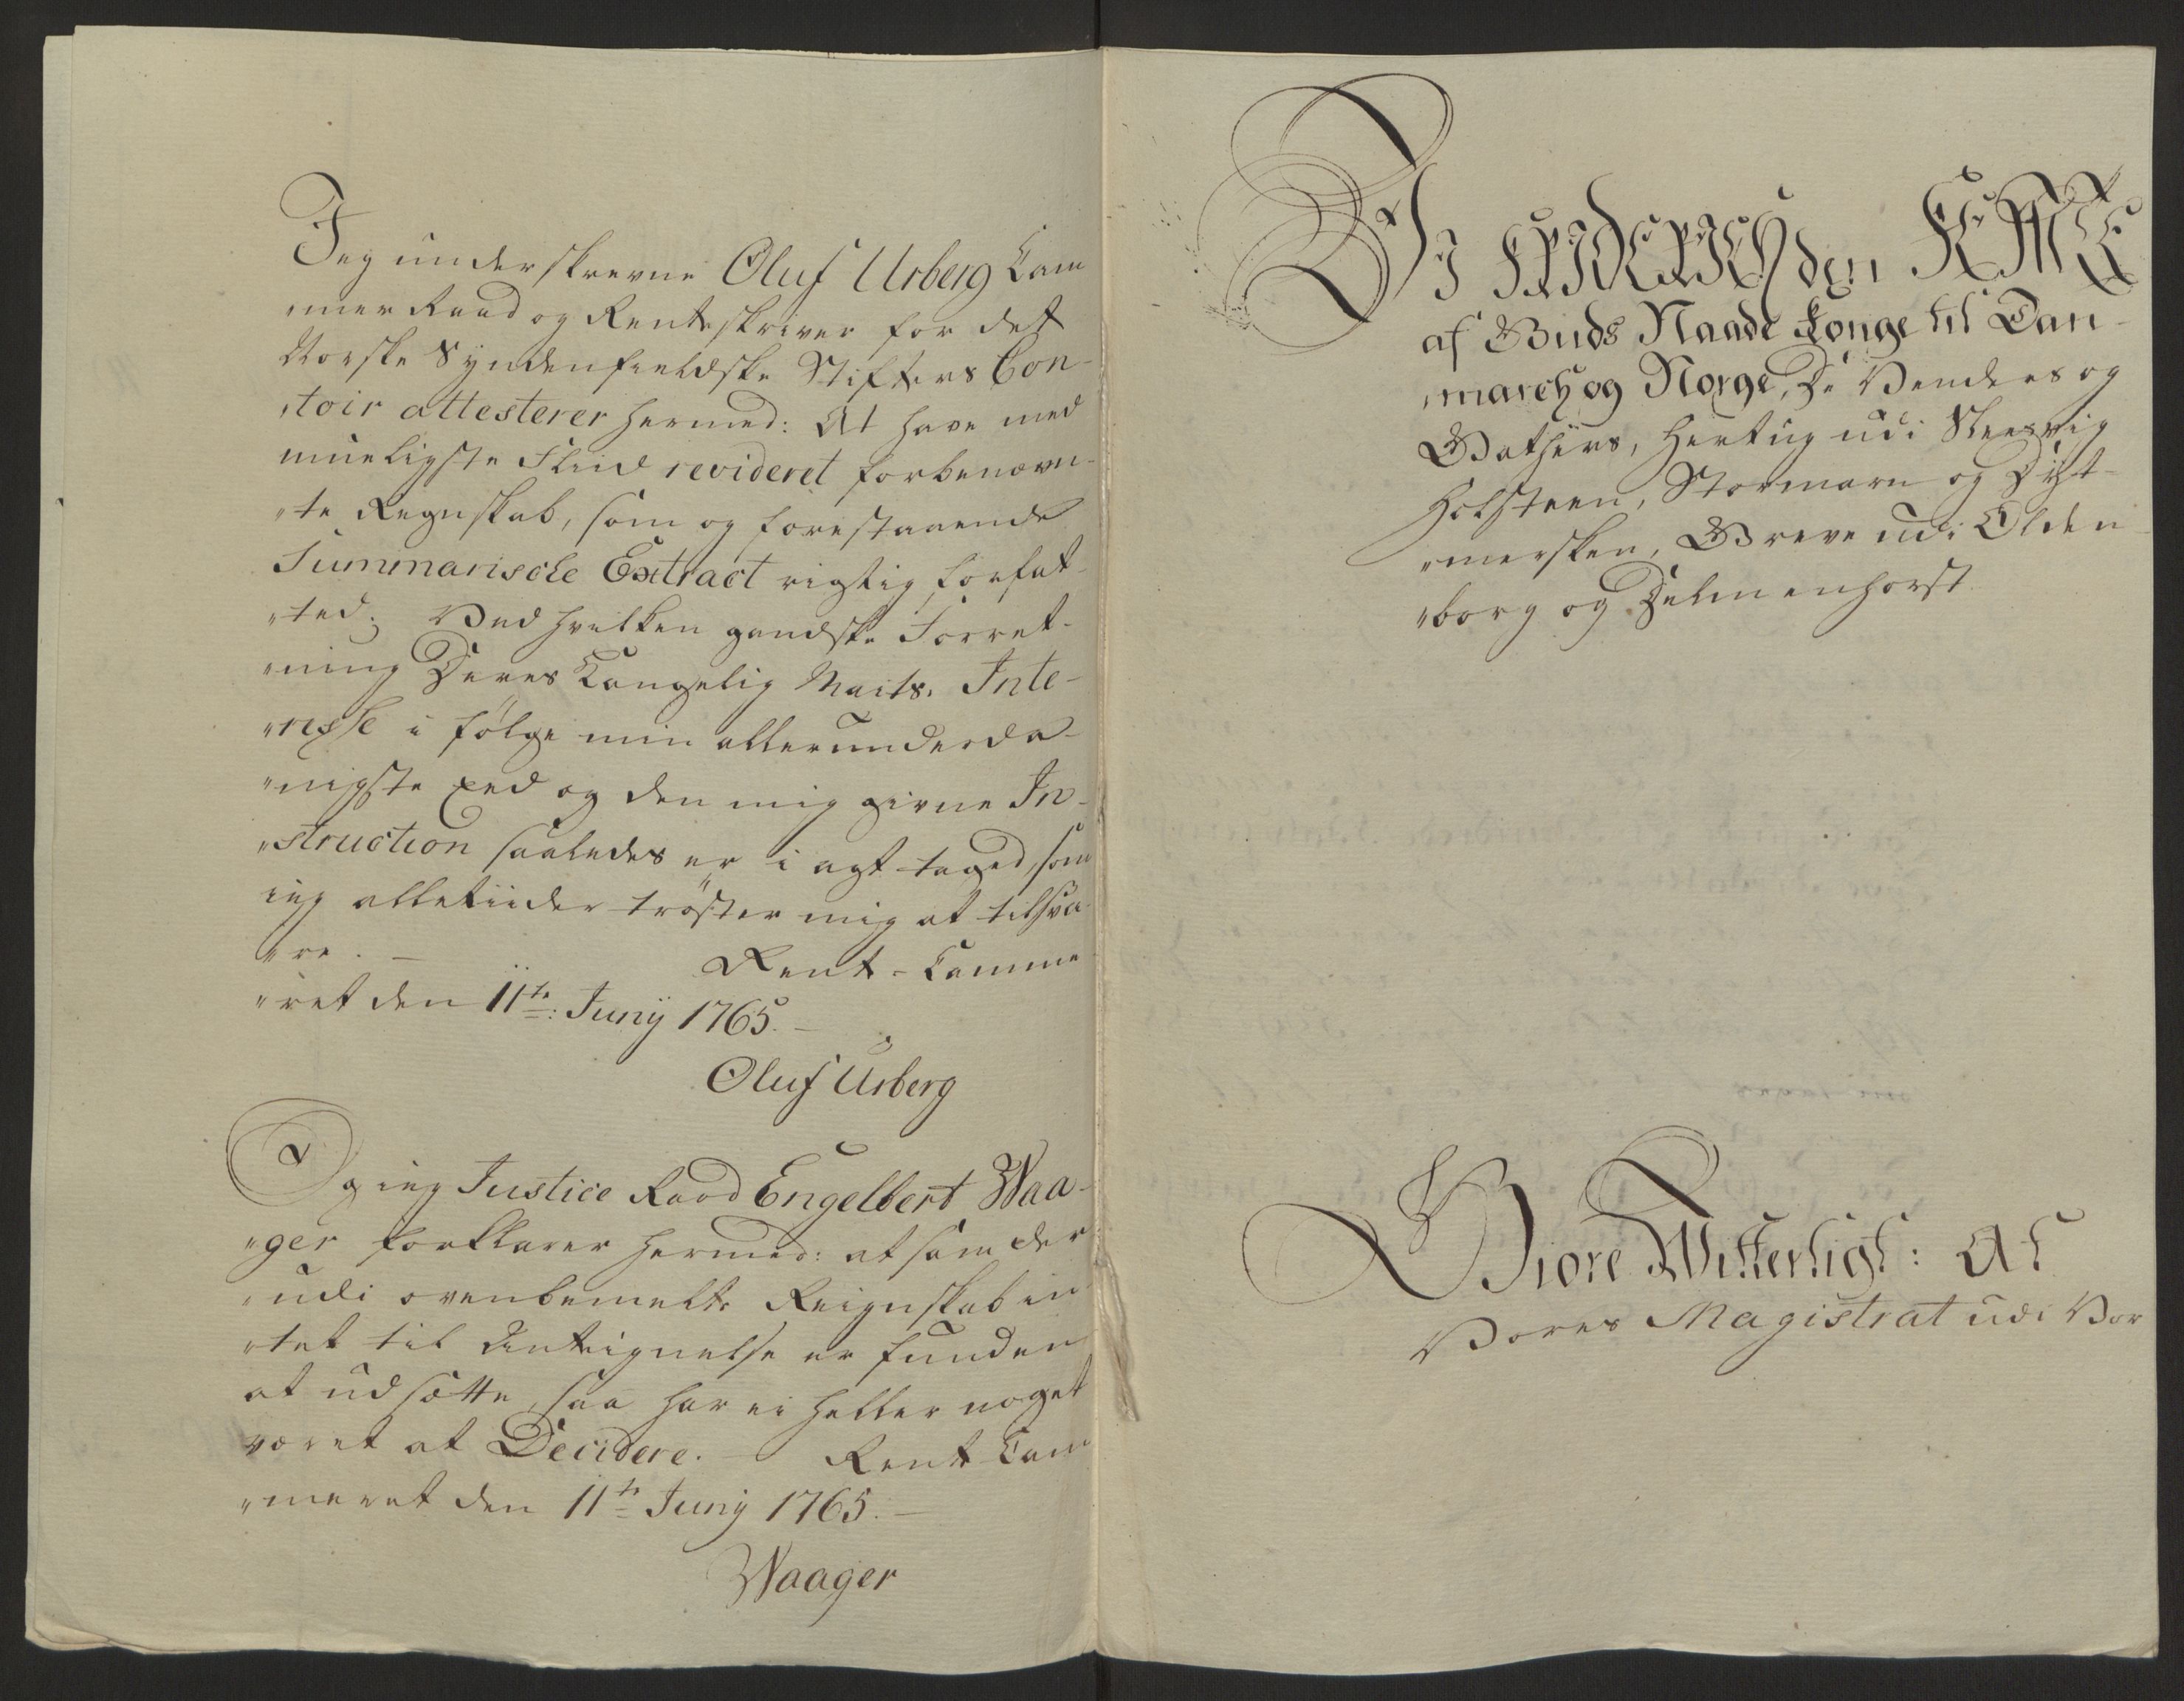 Jeg underskrevne Oluf Urberg Cam
"mer Raad og Renteskriver for det
Norske Syndenfieldske Stifters Con-
"toir attesterer hermed: At have med
mueligste Fliid revideret forbenævn-
"te Regnskab, som og forestaaende
Summariscke Extract rigtig forfat-
"ted; Ved hvilken gandske Forret-
"ning Deres Kongelig Maits. Inte-
"resse i følge min allerunderda-
"nigste Eed og den mig givne In-
"struction saaledes er i agt taged, som
ieg alletiider trøster mig at tilsva-
"re. – Rent-Camme
"ret den 11te: Junij 1765. –
Oluf Urberg
Og ieg Justice Raad Engelbert Waa-
"ger forklarer hermed: at som der
"udi ovenbemelte Reignskab in
"tet til Antegnelse er funden
at udsætte, saa har ei heller noget
været at Decidere. – Rent Cam
"meret den 11te Junij 1765. –
Waager
Vi FRIDERICH den FEMTE
af Guds Naade Konge til Dan-
"march og Norge, De Venders og
Gothers, Hertug udi Sleesvig
Holsteen, Stormarn og Dyt-
"mersken, Greve udi Olden-
"borg og Delmenhorst
Giøre Witterligt: At
Vores Magistrat udi Vor